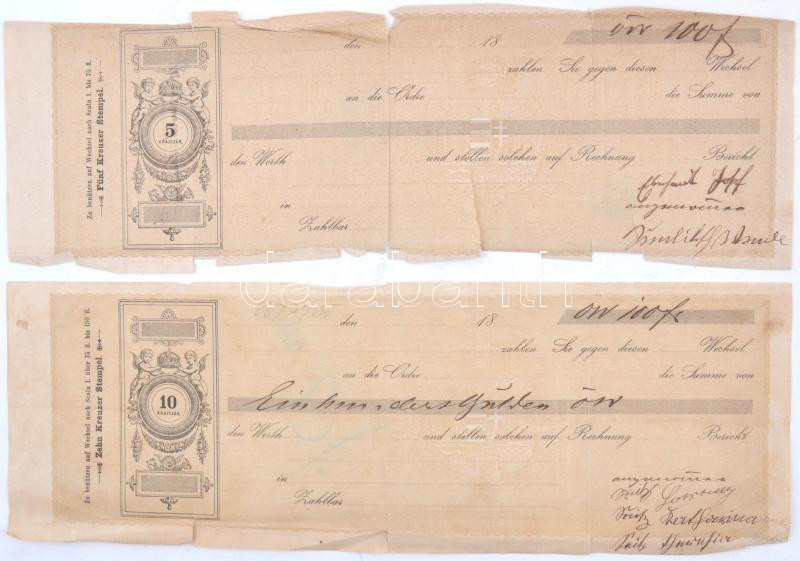 Zu benützen auf Wechsel nach Scala I. bis 75 fl.
Fünf Kreuzer Stempel.
5
den 18 öW 100 f
zahlen Sie gegen diesen Wechsel
an die Ordre die Summe von
den Werth und stellen solchen auf Rechnung Bericht
in
Zahlbar
angenommen
darabanth
Zu benützen auf Wechsel nach Scala I. über 75 fl. bis 150 fl.
Zehn Kreuzer Stempel.
10
den 18 öW 100 f
zahlen Sie gegen diesen Wechsel
an die Ordre die Summe von
Einhundert Gulden öW
den Werth und stellen solchen auf Rechnung Bericht
in
Zahlbar
angenommen